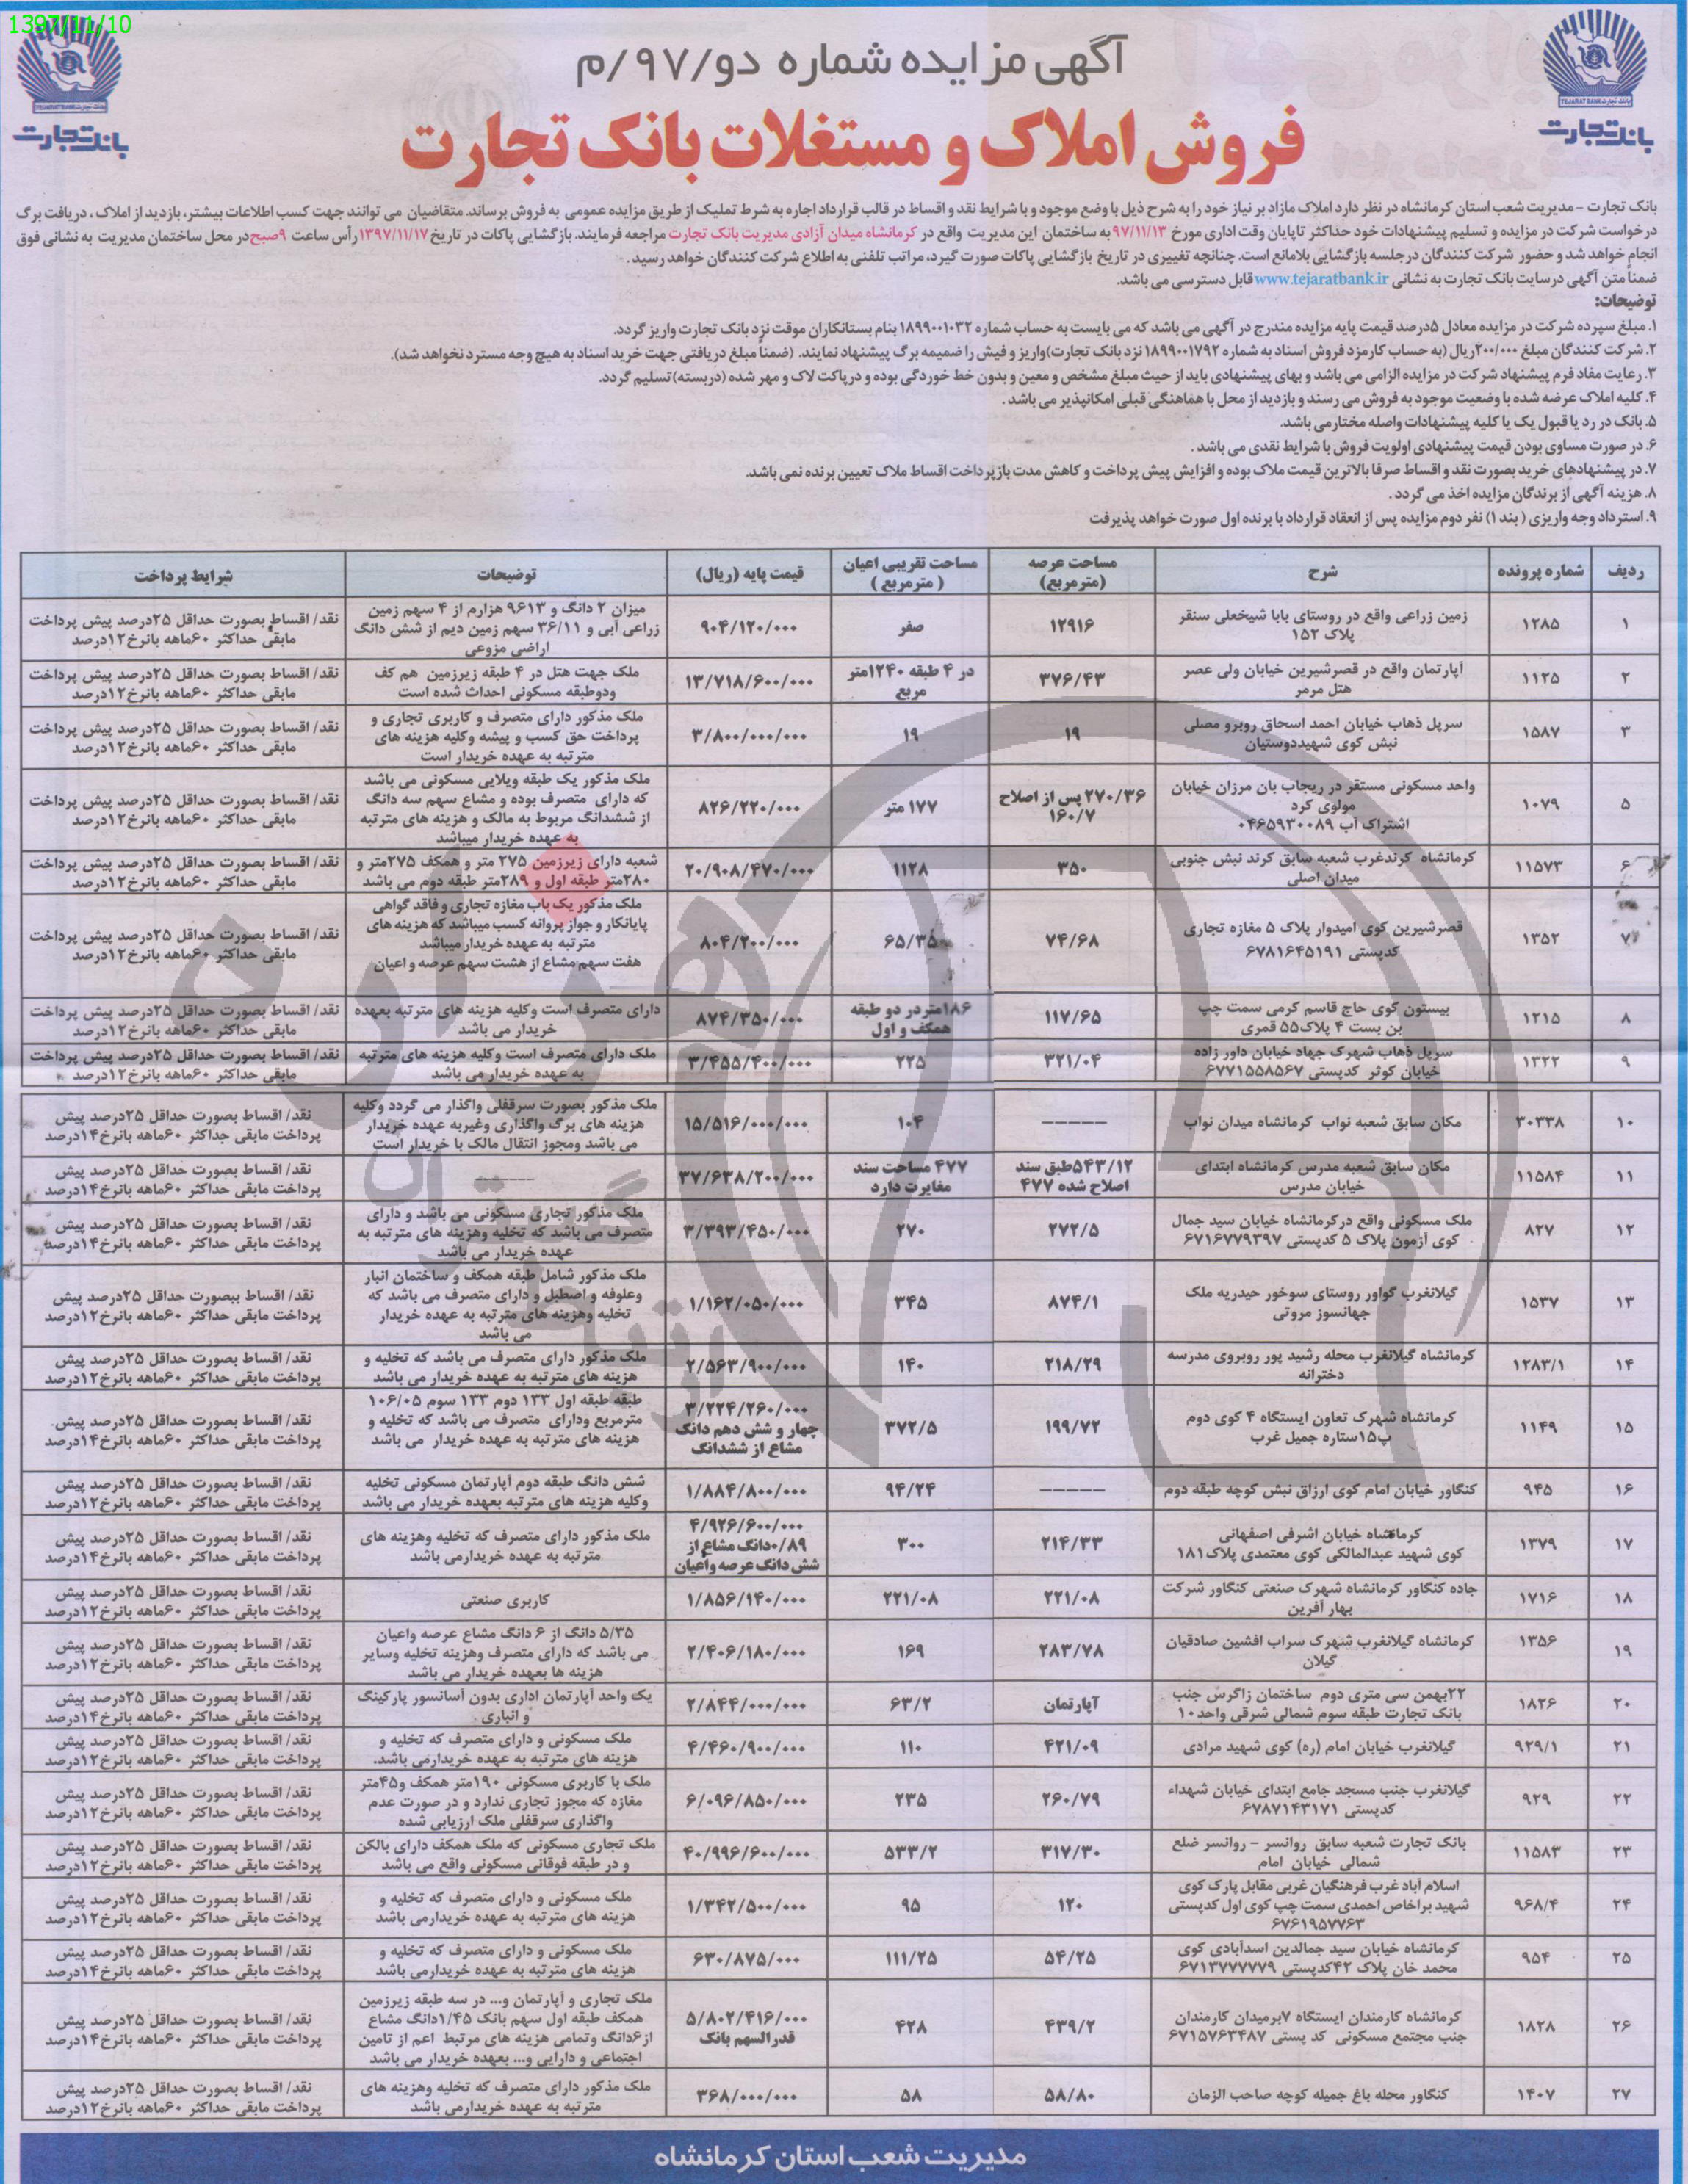 1397/11/10
آگهی مزایده شماره دو/۹۷/م
فروش املاک و مستغلات بانک تجارت
TEJARAT BANK بانک تجارت
بانک تجارت
TEJARAT BANK بانک تجارت
بانک تجارت
بانک تجارت – مدیریت شعب استان کرمانشاه در نظر دارد املاک مازاد بر نیاز خود را به شرح ذیل با وضع موجود و با شرایط نقد و اقساط در قالب قرارداد اجاره به شرط تملیک از طریق مزایده عمومی به فروش برساند. متقاضیان می توانند جهت کسب اطلاعات بیشتر، بازدید از املاک، دریافت برگ
درخواست شرکت در مزایده و تسلیم پیشنهادات خود حداکثر تاپایان وقت اداری مورخ ۹۷/۱۱/۱۳ به ساختمان این مدیریت واقع در کرمانشاه میدان آزادی مدیریت بانک تجارت مراجعه فرمایند. بازگشایی پاکات در تاریخ ۱۳۹۷/۱۱/۱۷ رأس ساعت ۹صبح در محل ساختمان مدیریت به نشانی فوق
انجام خواهد شد و حضور شرکت کنندگان درجلسه بازگشایی بلامانع است. چنانچه تغییری در تاریخ بازگشایی پاکات صورت گیرد، مراتب تلفنی به اطلاع شرکت کنندگان خواهد رسید.
ضمناً متن آگهی درسایت بانک تجارت به نشانی www.tejaratbank.ir قابل دسترسی می باشد.
توضیحات:
۱. مبلغ سپرده شرکت در مزایده معادل ۵درصد قیمت پایه مزایده مندرج در آگهی می باشد که می بایست به حساب شماره ۱۸۹۹۰۰۱۰۳۲ بنام بستانکاران موقت نزد بانک تجارت واریز گردد.
۲. شرکت کنندگان مبلغ ۲۰۰/۰۰۰ریال (به حساب کارمزد فروش اسناد به شماره ۱۸۹۹۰۰۱۷۹۲ نزد بانک تجارت)واریز و فیش را ضمیمه برگ پیشنهاد نمایند. (ضمناً مبلغ دریافتی جهت خرید اسناد به هیچ وجه مسترد نخواهد شد).
۳. رعایت مفاد فرم پیشنهاد شرکت در مزایده الزامی می باشد و بهای پیشنهادی باید از حیث مبلغ مشخص و معین و بدون خط خوردگی بوده و درپاکت لاک و مهر شده (دربسته)تسلیم گردد.
۴. کلیه املاک عرضه شده با وضعیت موجود به فروش می رسند و بازدید از محل با هماهنگی قبلی امکانپذیر می باشد.
۵. بانک در رد یا قبول یک یا کلیه پیشنهادات واصله مختارمی باشد.
۶. در صورت مساوی بودن قیمت پیشنهادی اولویت فروش با شرایط نقدی می باشد.
۷. در پیشنهادهای خرید بصورت نقد و اقساط صرفا بالاترین قیمت ملاک بوده و افزایش پیش پرداخت و کاهش مدت بازپرداخت اقساط ملاک تعیین برنده نمی باشد.
۸. هزینه آگهی از برندگان مزایده اخذ می گردد.
۹. استرداد وجه واریزی ( بند ۱) نفر دوم مزایده پس از انعقاد قرارداد با برنده اول صورت خواهد پذیرفت
ردیف شماره پرونده شرح مساحت عرصه (مترمربع) مساحت تقریبی اعیان ( مترمربع ) قیمت پایه (ریال) توضیحات شرایط پرداخت
۱ ۱۲۸۵ زمین زراعی واقع در روستای بابا شیخعلی سنقر پلاک ۱۵۲ ۱۲۹۱۶ صفر ۹۰۴/۱۲۰/۰۰۰ میزان ۲ دانگ و ۹۶۱۳ هزارم از ۴ سهم زمین زراعی آبی و ۳۶/۱۱ سهم زمین دیم از شش دانگ اراضی مزوعی نقد/ اقساط بصورت حداقل ۲۵درصد پیش پرداخت مابقی حداکثر ۶۰ماهه بانرخ۱۲درصد
۲ ۱۱۲۵ آپارتمان واقع در قصرشیرین خیابان ولی عصر هتل مرمر ۳۷۶/۴۳ در ۴ طبقه ۱۲۴۰متر مربع ۱۳/۷۱۸/۶۰۰/۰۰۰ ملک جهت هتل در ۴ طبقه زیرزمین هم کف ودوطبقه مسکونی احداث شده است نقد/ اقساط بصورت حداقل ۲۵درصد پیش پرداخت مابقی حداکثر ۶۰ماهه بانرخ۱۲درصد
۳ ۱۵۸۷ سرپل ذهاب خیابان احمد اسحاق روبرو مصلی نبش کوی شهیددوستیان ۱۹ ۱۹ ۳/۸۰۰/۰۰۰/۰۰۰ ملک مذکور دارای متصرف و کاربری تجاری و پرداخت حق کسب و پیشه وکلیه هزینه های مترتبه به عهده خریدار است نقد/ اقساط بصورت حداقل ۲۵درصد پیش پرداخت مابقی حداکثر ۶۰ماهه بانرخ۱۲درصد
۵ ۱۰۷۹ واحد مسکونی مستقر در ریجاب بان مرزان خیابان مولوی کرد اشتراک آب ۰۴۶۵۹۳۰۰۸۹ ۲۷۰/۳۶ پس از اصلاح ۱۶۰/۷ ۱۷۷ متر ۸۲۶/۲۲۰/۰۰۰ ملک مذکور یک طبقه ویلایی مسکونی می باشد که دارای متصرف بوده و مشاع سهم سه دانگ از ششدانگ مربوط به مالک و هزینه های مترتبه به عهده خریدار میباشد نقد/ اقساط بصورت حداقل ۲۵درصد پیش پرداخت مابقی حداکثر ۶۰ماهه بانرخ۱۲درصد
۶ ۱۱۵۷۳ کرمانشاه کرندغرب شعبه سابق کرند نبش جنوبی میدان اصلی ۳۵۰ ۱۱۲۸ ۲۰/۹۰۸/۴۷۰/۰۰۰ شعبه دارای زیرزمین ۲۷۵ متر و همکف ۲۷۵متر و ۲۸۰متر طبقه اول و ۲۸۹متر طبقه دوم می باشد نقد/ اقساط بصورت حداقل ۲۵درصد پیش پرداخت مابقی حداکثر ۶۰ماهه بانرخ۱۲درصد
۷ ۱۳۵۲ قصرشیرین کوی امیدوار پلاک ۵ مغازه تجاری کدپستی ۶۷۸۱۶۴۵۱۹۱ ۷۴/۶۸ ۶۵/۳۵ ۸۰۴/۲۰۰/۰۰۰ ملک مذکور یک باب مغازه تجاری و فاقد گواهی پایانکار و جواز پروانه کسب میباشد که هزینه های مترتبه به عهده خریدار میباشد هفت سهم مشاع از هشت سهم عرصه و اعیان نقد/ اقساط بصورت حداقل ۲۵درصد پیش پرداخت مابقی حداکثر ۶۰ماهه بانرخ۱۲درصد
۸ ۱۲۱۵ بیستون کوی حاج قاسم کرمی سمت چپ بن بست ۴ پلاک۵۵ قمری ۱۱۷/۶۵ ۱۸۶متردر دو طبقه همکف و اول ۸۷۴/۳۵۰/۰۰۰ دارای متصرف است وکلیه هزینه های مترتبه بعهده خریدار می باشد نقد/ اقساط بصورت حداقل ۲۵درصد پیش پرداخت مابقی حداکثر ۶۰ماهه بانرخ۱۲درصد
۹ ۱۳۲۲ سرپل ذهاب شهرک جهاد خیابان داور زاده خیابان کوثر کدپستی ۶۷۷۱۵۵۸۵۶۷ ۳۲۱/۰۴ ۲۲۵ ۳/۴۵۵/۴۰۰/۰۰۰ ملک دارای متصرف است وکلیه هزینه های مترتبه به عهده خریدار می باشد نقد/ اقساط بصورت حداقل ۲۵درصد پیش پرداخت مابقی حداکثر ۶۰ماهه بانرخ۱۲درصد
۱۰ ۳۰۳۳۸ مکان سابق شعبه نواب کرمانشاه میدان نواب ----- ۱۰۴ ۱۵/۵۱۶/۰۰۰/۰۰۰ ملک مذکور بصورت سرقفلی واگذار می گردد وکلیه هزینه های برگ واگذاری وغیربه عهده خریدار می باشد ومجوز انتقال مالک با خریدار است نقد/ اقساط بصورت حداقل ۲۵درصد پیش پرداخت مابقی حداکثر ۶۰ماهه بانرخ۱۴درصد
۱۱ ۱۱۵۸۴ مکان سابق شعبه مدرس کرمانشاه ابتدای خیابان مدرس ۵۴۳/۱۲طبق سند اصلاح شده ۴۷۷ ۴۷۷ مساحت سند مغایرت دارد ۳۷/۶۳۸/۲۰۰/۰۰۰ ----- نقد/ اقساط بصورت حداقل ۲۵درصد پیش پرداخت مابقی حداکثر ۶۰ماهه بانرخ۱۴درصد
۱۲ ۸۲۷ ملک مسکونی واقع درکرمانشاه خیابان سید جمال کوی آزمون پلاک ۵ کدپستی ۶۷۱۶۷۷۹۳۹۷ ۲۷۲/۵ ۲۷۰ ۳/۳۹۳/۴۵۰/۰۰۰ ملک مذکور تجاری مسکونی می باشد و دارای متصرف می باشد که تخلیه وهزینه های مترتبه به عهده خریدار می باشد نقد/ اقساط بصورت حداقل ۲۵درصد پیش پرداخت مابقی حداکثر ۶۰ماهه بانرخ۱۴درصد
۱۳ ۱۵۳۷ گیلانغرب گواور روستای سوخور حیدریه ملک جهانسوز مروتی ۸۷۴/۱ ۳۴۵ ۱/۱۶۲/۰۵۰/۰۰۰ ملک مذکور شامل طبقه همکف و ساختمان انبار وعلوفه و اصطبل و دارای متصرف می باشد که تخلیه وهزینه های مترتبه به عهده خریدار می باشد نقد/ اقساط ببصورت حداقل ۲۵درصد پیش پرداخت مابقی حداکثر ۶۰ماهه بانرخ۱۲درصد
۱۴ ۱۲۸۳/۱ کرمانشاه گیلانغرب محله رشید پور روبروی مدرسه دخترانه ۲۱۸/۲۹ ۱۴۰ ۲/۵۶۳/۹۰۰/۰۰۰ ملک مذکور دارای متصرف می باشد که تخلیه و هزینه های مترتبه به عهده خریدار می باشد نقد/ اقساط بصورت حداقل ۲۵درصد پیش پرداخت مابقی حداکثر ۶۰ماهه بانرخ۱۲درصد
۱۵ ۱۱۴۹ کرمانشاه شهرک تعاون ایستگاه ۴ کوی دوم پ۱۵ستاره جمیل غرب ۱۹۹/۷۲ ۳۷۲/۵ ۳/۲۲۴/۲۶۰/۰۰۰ چهار و شش دهم دانگ مشاع از ششدانگ طبقه طبقه اول ۱۳۳ دوم ۱۳۳ سوم ۱۰۶/۰۵ مترمربع ودارای متصرف می باشد که تخلیه و هزینه های مترتبه به عهده خریدار می باشد نقد/ اقساط بصورت حداقل ۲۵درصد پیش پرداخت مابقی حداکثر ۶۰ماهه بانرخ۱۴درصد
۱۶ ۹۴۵ کنگاور خیابان امام کوی ارزاق نبش کوچه طبقه دوم ----- ۹۴/۲۴ ۱/۸۸۴/۸۰۰/۰۰۰ شش دانگ طبقه دوم آپارتمان مسکونی تخلیه وکلیه هزینه های مترتبه بعهده خریدار می باشد نقد/ اقساط بصورت حداقل ۲۵درصد پیش پرداخت مابقی حداکثر ۶۰ماهه بانرخ۱۲درصد
۱۷ ۱۳۷۹ کرمانشاه خیابان اشرفی اصفهانی کوی شهید عبدالمالکی کوی معتمدی پلاک۱۸۱ ۲۱۴/۳۳ ۳۰۰ ۴/۹۲۶/۶۰۰/۰۰۰ ۰/۸۹دانگ مشاع از شش دانگ عرصه واعیان ملک مذکور دارای متصرف که تخلیه وهزینه های مترتبه به عهده خریدارمی باشد نقد/ اقساط بصورت حداقل ۲۵درصد پیش پرداخت مابقی حداکثر ۶۰ماهه بانرخ۱۴درصد
۱۸ ۱۷۱۶ جاده کنگاور کرمانشاه شهرک صنعتی کنگاور شرکت بهار آفرین ۲۲۱/۰۸ ۲۲۱/۰۸ ۱/۸۵۶/۱۴۰/۰۰۰ کاربری صنعتی نقد/ اقساط بصورت حداقل ۲۵درصد پیش پرداخت مابقی حداکثر ۶۰ماهه بانرخ۱۲درصد
۱۹ ۱۳۵۶ کرمانشاه گیلانغرب شهرک سراب افشین صادقیان گیلان ۲۸۳/۷۸ ۱۶۹ ۲/۴۰۶/۱۸۰/۰۰۰ ۵/۳۵ دانگ از ۶ دانگ مشاع عرصه واعیان می باشد که دارای متصرف وهزینه تخلیه وسایر هزینه ها بعهده خریدار می باشد نقد/ اقساط بصورت حداقل ۲۵درصد پیش پرداخت مابقی حداکثر ۶۰ماهه بانرخ۱۲درصد
۲۰ ۱۸۲۶ ۲۲بهمن سی متری دوم ساختمان زاگرس جنب بانک تجارت طبقه سوم شمالی شرقی واحد۱۰ آپارتمان ۶۳/۲ ۲/۸۴۴/۰۰۰/۰۰۰ یک واحد آپارتمان اداری بدون آسانسور پارکینگ و انباری نقد/ اقساط بصورت حداقل ۲۵درصد پیش پرداخت مابقی حداکثر ۶۰ماهه بانرخ۱۴درصد
۲۱ ۹۲۹/۱ گیلانغرب خیابان امام (ره) کوی شهید مرادی ۴۲۱/۰۹ ۱۱۰ ۴/۴۶۰/۹۰۰/۰۰۰ ملک مسکونی و دارای متصرف که تخلیه و هزینه های مترتبه به عهده خریدارمی باشد. نقد/ اقساط بصورت حداقل ۲۵درصد پیش پرداخت مابقی حداکثر ۶۰ماهه بانرخ۱۲درصد
۲۲ ۹۲۹ گیلانغرب جنب مسجد جامع ابتدای خیابان شهداء کدپستی ۶۷۸۷۱۴۳۱۷۱ ۲۶۰/۷۹ ۲۳۵ ۶/۰۹۶/۸۵۰/۰۰۰ ملک با کاربری مسکونی ۱۹۰متر همکف و۴۵متر مغازه که مجوز تجاری ندارد و در صورت عدم واگذاری سرقفلی ملک ارزیابی شده نقد/ اقساط بصورت حداقل ۲۵درصد پیش پرداخت مابقی حداکثر ۶۰ماهه بانرخ۱۲درصد
۲۳ ۱۱۵۸۳ بانک تجارت شعبه سابق روانسر – روانسر ضلع شمالی خیابان امام ۳۱۷/۳۰ ۵۳۳/۲ ۴۰/۹۹۶/۶۰۰/۰۰۰ ملک تجاری مسکونی که ملک همکف دارای بالکن و در طبقه فوقانی مسکونی واقع می باشد نقد/ اقساط بصورت حداقل ۲۵درصد پیش پرداخت مابقی حداکثر ۶۰ماهه بانرخ۱۲درصد
۲۴ ۹۶۸/۴ اسلام آباد غرب فرهنگیان غربی مقابل پارک کوی شهید براخاص احمدی سمت چپ کوی اول کدپستی ۶۷۶۱۹۵۷۷۶۳ ۱۲۰ ۹۵ ۱/۳۴۲/۵۰۰/۰۰۰ ملک مسکونی و دارای متصرف که تخلیه و هزینه های مترتبه به عهده خریدارمی باشد نقد/ اقساط بصورت حداقل ۲۵درصد پیش پرداخت مابقی حداکثر ۶۰ماهه بانرخ۱۲درصد
۲۵ ۹۵۴ کرمانشاه خیابان سید جمالدین اسدآبادی کوی محمد خان پلاک ۴۲کدپستی ۶۷۱۳۷۷۷۷۷۹ ۵۴/۲۵ ۱۱۱/۲۵ ۶۳۰/۸۷۵/۰۰۰ ملک مسکونی و دارای متصرف که تخلیه و هزینه های مترتبه به عهده خریدارمی باشد نقد/ اقساط بصورت حداقل ۲۵درصد پیش پرداخت مابقی حداکثر ۶۰ماهه بانرخ۱۴درصد
۲۶ ۱۸۲۸ کرمانشاه کارمندان ایستگاه ۷برمیدان کارمندان جنب مجتمع مسکونی کد پستی ۶۷۱۵۷۶۳۴۸۷ ۴۳۹/۲ ۴۲۸ ۵/۸۰۲/۴۱۶/۰۰۰ قدرالسهم بانک ملک تجاری و آپارتمان و... در سه طبقه زیرزمین همکف طبقه اول سهم بانک ۱/۴۵دانگ مشاع از۶دانگ وتمامی هزینه های مرتبط اعم از تامین اجتماعی و دارایی و... بعهده خریدار می باشد نقد/ اقساط بصورت حداقل ۲۵درصد پیش پرداخت مابقی حداکثر ۶۰ماهه بانرخ۱۴درصد
۲۷ ۱۴۰۷ کنگاور محله باغ جمیله کوچه صاحب الزمان ۵۸/۸۰ ۵۸ ۳۶۸/۰۰۰/۰۰۰ ملک مذکور دارای متصرف که تخلیه وهزینه های مترتبه به عهده خریدارمی باشد نقد/ اقساط بصورت حداقل ۲۵درصد پیش پرداخت مابقی حداکثر ۶۰ماهه بانرخ۱۲درصد
مدیریت شعب استان کرمانشاه